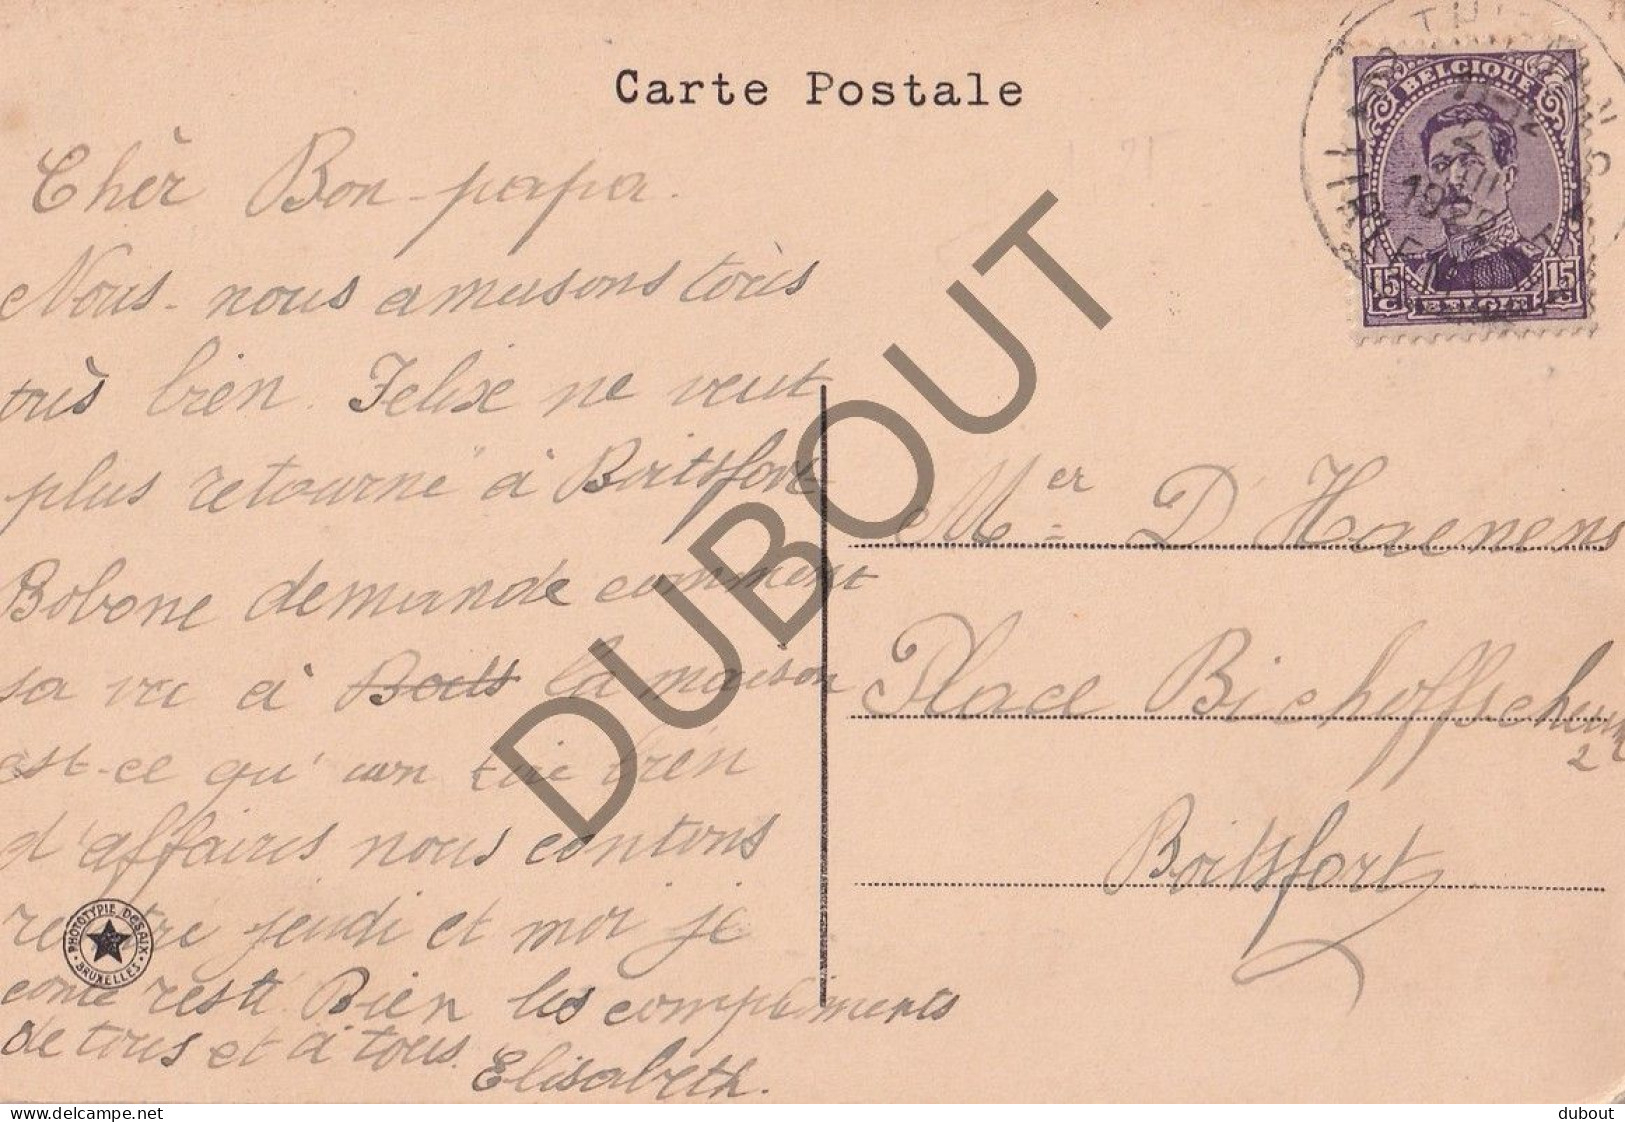 Carte Postale
BELGIQUE
15 C
15 C
BELGIE
1922
Chèr Bon-papa.
Nous-nous amusons tous
très bien. Felix ne veut
plus retourné à Boitsfort
Bobone demande comment
sa va à Boits la maison
est-ce qu'un tire bien
d'affaires nous contons
rentré jeudi et moi je
conte resté. Bien les compliments
de tous et à tous.
Elisabeth.
Mer D'Haenens
Place Bischoffscheim
2
Boitsfort
PHOTOTYPIE DESAIX
BRUXELLES
DUBOUT
delcampe.net
dubout